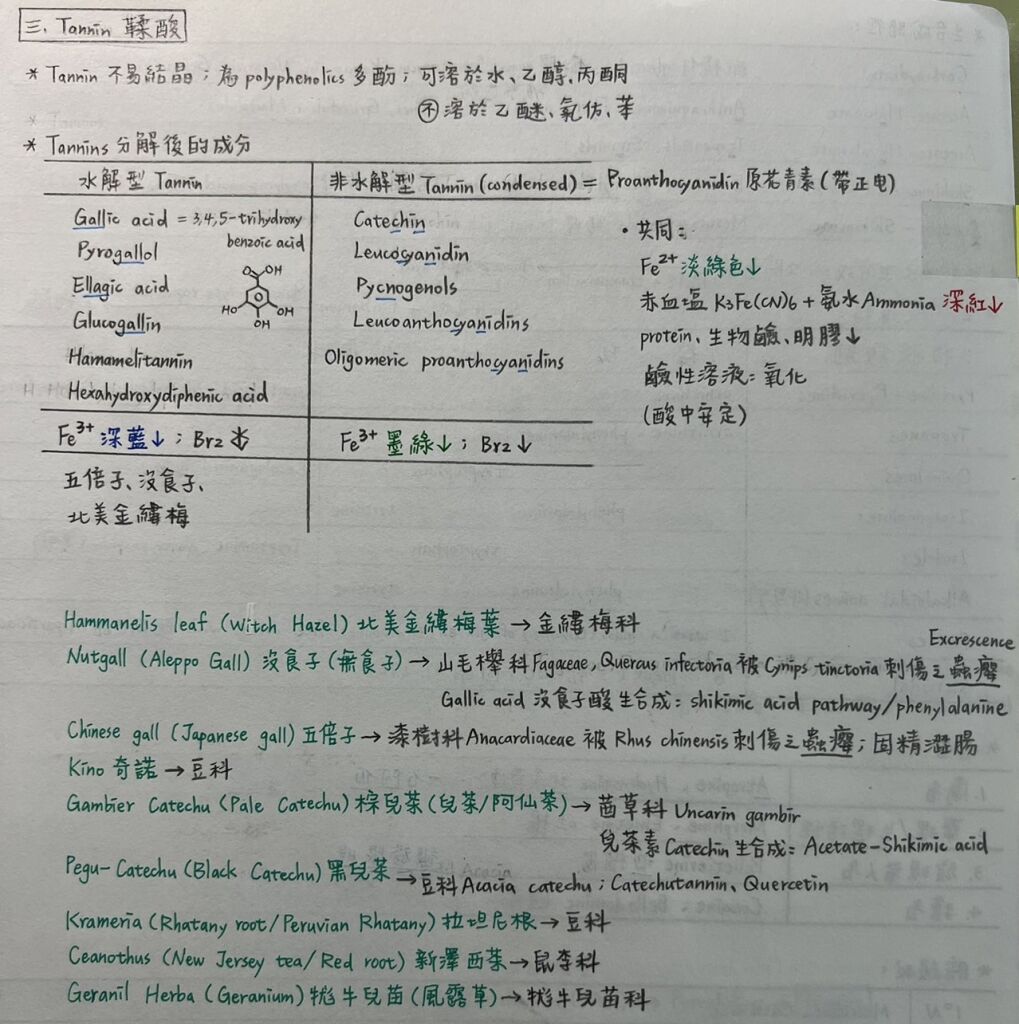 三. Tannin 鞣酸
* Tannin 不易結晶；為 polyphenolics 多酚；可溶於水、乙醇、丙酮
不溶於乙醚、氯仿、苯
* Tannins 分解後的成分
水解型 Tannin
非水解型 Tannin (condensed) = Proanthocyanidin 原花青素 (帶正电)
Gallic acid = 3,4,5-trihydroxy benzoic acid
Pyrogallol
Ellagic acid
Glucogallin
Hamamelitannin
Hexahydroxydiphenic acid
O OH
HO OH
OH
Catechin
Leucocyanidin
Pycnogenols
Leucoanthocyanidins
Oligomeric proanthocyanidins
• 共同：
Fe²⁺ 淡綠色↓
赤血塩 K3Fe(CN)6 + 氨水 Ammonia 深紅↓
protein、生物鹼、明膠↓
鹼性溶液：氧化
(酸中安定)
Fe³⁺ 深藍↓；Br2 不↓
Fe³⁺ 墨綠↓；Br2↓
五倍子、沒食子、
北美金縷梅
Hammanelis leaf (Witch Hazel) 北美金縷梅葉 → 金縷梅科
Excrescence
Nutgall (Aleppo Gall) 沒食子 (無食子) → 山毛櫸科 Fagaceae, Quercus infectoria 被 Cynips tinctoria 刺傷之蟲癭
Gallic acid 沒食子酸生合成：shikimic acid pathway/phenylalanine
Chinese gall (Japanese gall) 五倍子 → 漆樹科 Anacardiaceae 被 Rhus chinensis 刺傷之蟲癭；固精澀腸
Kino 奇諾 → 豆科
Gambier Catechu (Pale Catechu) 棕兒茶 (兒茶/阿仙茶) → 茜草科 Uncarin gambir
兒茶素 Catechin 生合成：Acetate-Shikimic acid
Pegu-Catechu (Black Catechu) 黑兒茶 → 豆科 Acacia catechu；Catechutannin、Quercetin
Krameria (Rhatany root/Peruvian Rhatany) 拉坦尼根 → 豆科
Ceanothus (New Jersey tea/Red root) 新澤西茶 → 鼠李科
Geranil Herba (Geranium) 牻牛兒苗 (風露草) → 牻牛兒苗科